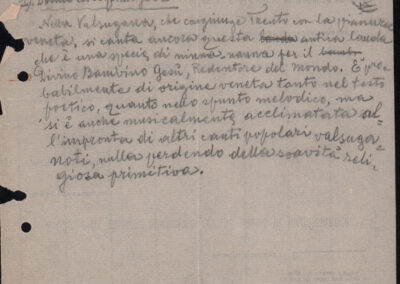 Nella Valsugana, che congiunge Trento con la pianura
veneta, si canta ancora questa antica lauda
che è una specie di ninna nanna per il
Divino Bambino Gesù, Redentore del mondo. È pro-
babilmente di origine veneta tanto nel testo
poetico, quanto nello spunto melodico, ma
si è anche musicalmente acclimatata al-
l'impronta di altri canti popolari valsuga-
noti, nulla perdendo della soavità reli-
giosa primitiva.